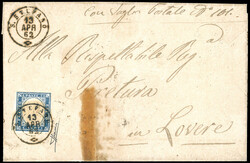 Con Foglio Postale N° 101.
13
APR
62
Alla Rispettabile Reg.
Pretura
in Lovere
13
APR
62